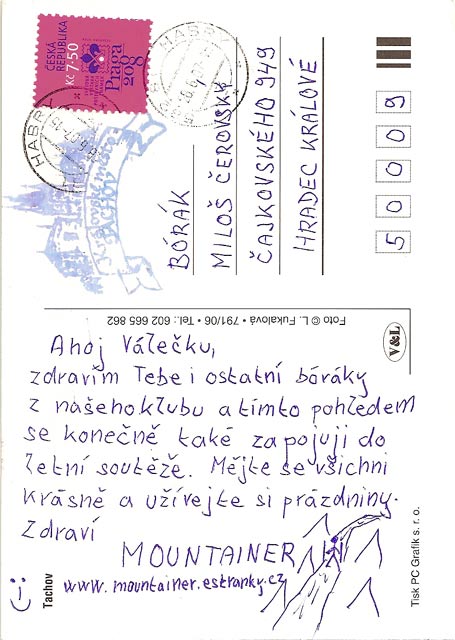 ČESKÁ REPUBLIKA
Kč 7·50
Praga 2008
HABRY
BÓRÁK
MILOŠ ČEROVSKÝ
ČAJKOVSKÉHO 949
HRADEC KRÁLOVÉ
50009
Foto © L. Fukalová • 791/06 • Tel.: 602 665 862
V&L
Ahoj Válečku,
zdravím Tebe i ostatní bóráky
z našeho klubu a tímto pohledem
se konečně také zapojuji do
letní soutěže. Mějte se všichni
krásně a užívejte si prázdniny.
Zdraví
MOUNTAINER
www.mountainer.estranky.cz
:-)
Tachov
Tisk PC Grafik s. r. o.